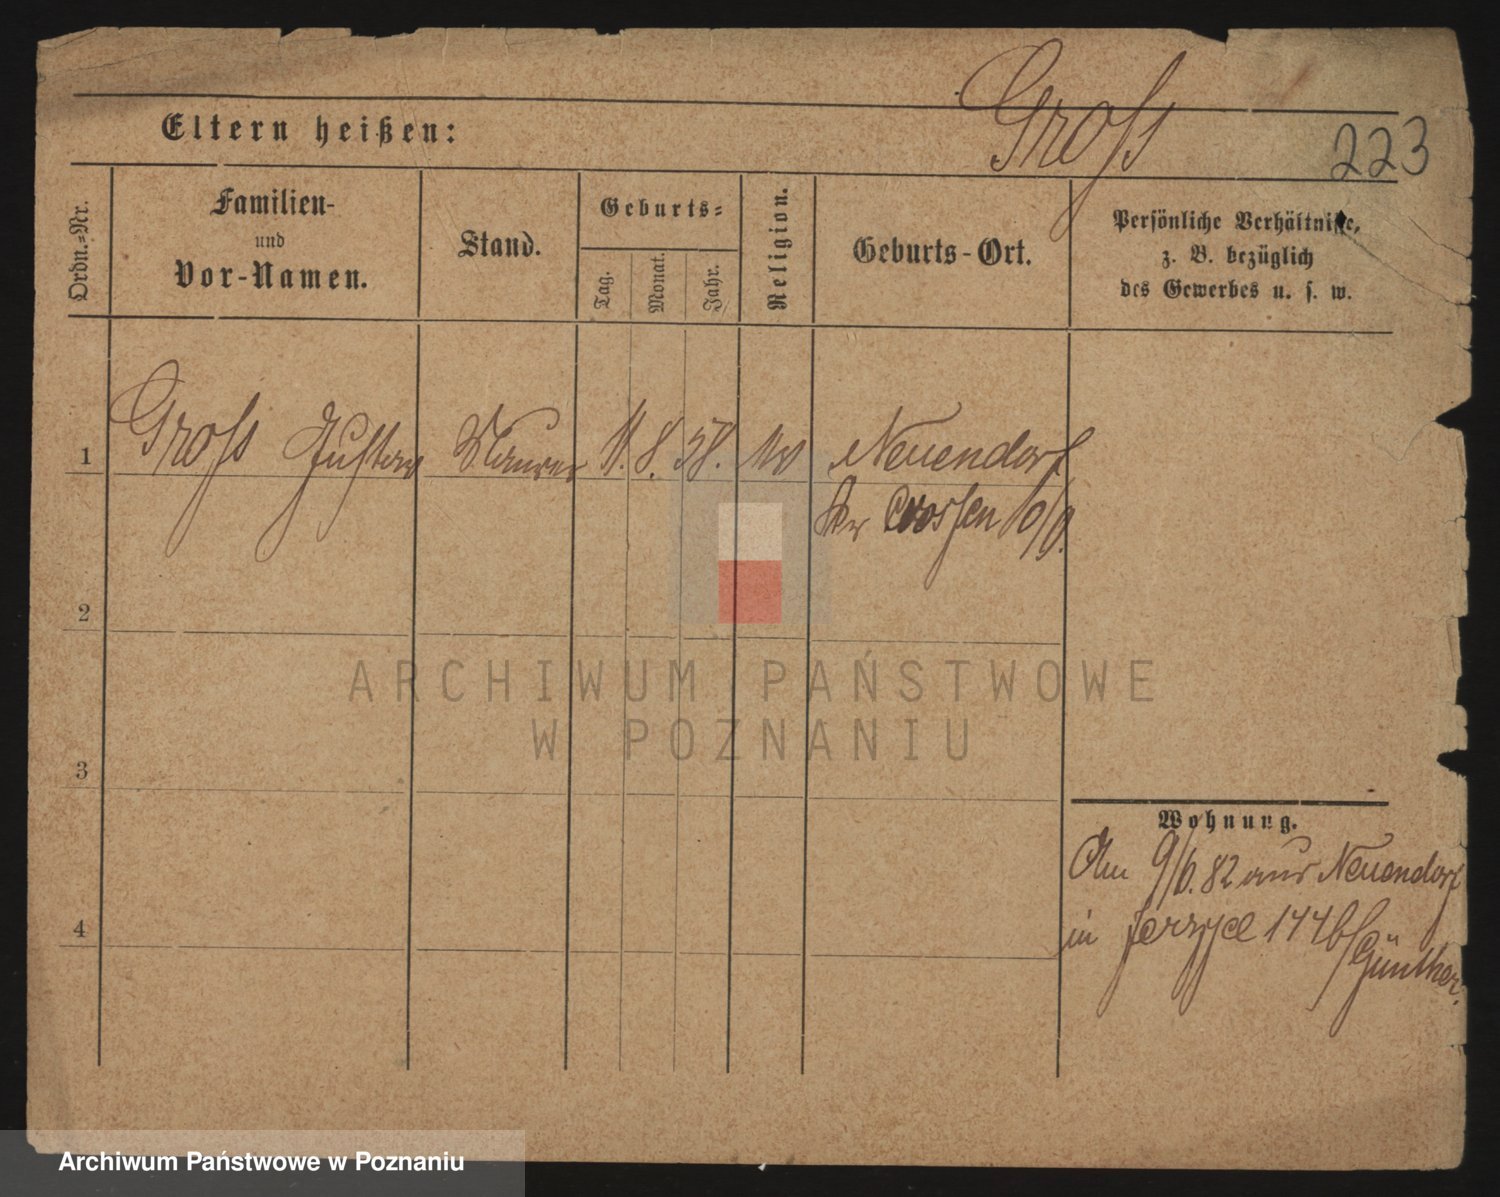 Gross
223
Eltern heißen:
Ordn.-Nr.
Familien-
und
Vor-Namen.
Stand.
Geburts-
Tag.
Monat.
Jahr.
Religion.
Geburts-Ort.
Persönliche Verhältnisse,
z. B. bezüglich
des Gewerbes u. s. w.
1 Gross Gustav Maurer 11. 8. 58. Neuendorf
Kr Crossen a/O.
2
3
4
Wohnung.
Am 9/6. 82 aus Neuendorf
in Jerzyce 144b/
Günther.
ARCHIWUM PAŃSTWOWE
W POZNANIU
Archiwum Państwowe w Poznaniu